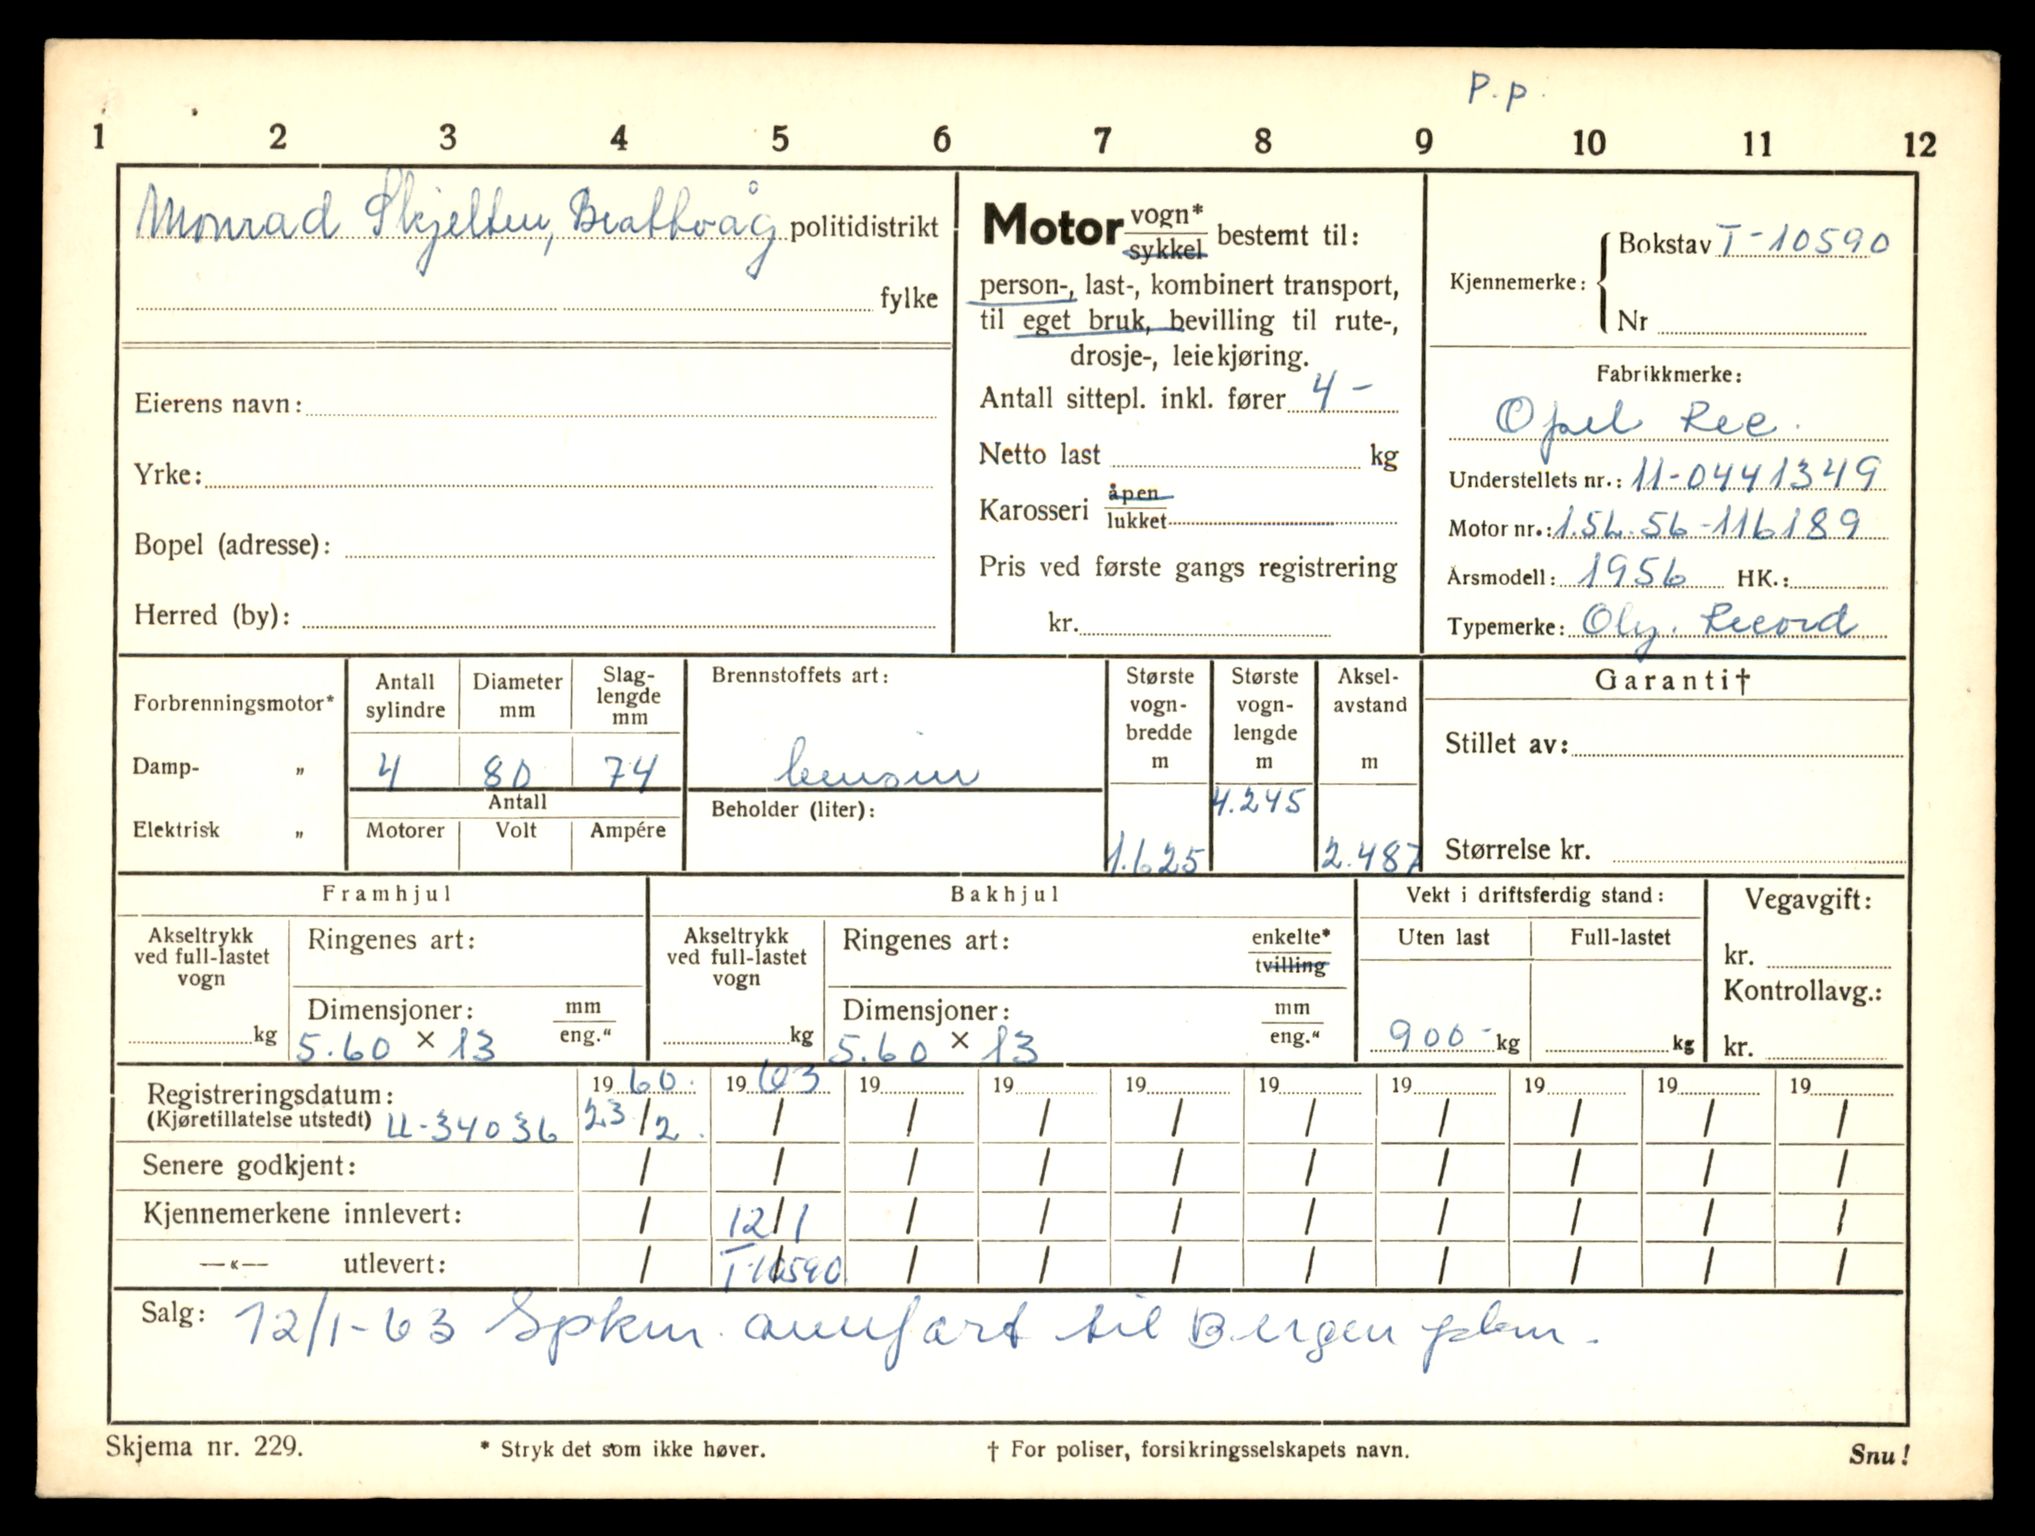 P.p.
1 2 3 4 5 6 7 8 9 10 11 12
Monrad Skjelten, Brattvåg politidistrikt
fylke
Eierens navn:
Yrke:
Bopel (adresse):
Herred (by):
Motor vogn* / sykkel bestemt til:
person-, last-, kombinert transport,
til eget bruk, bevilling til rute-,
drosje-, leiekjøring.
Antall sittepl. inkl. fører 4 -
Netto last kg
Karosseri åpen / lukket
Pris ved første gangs registrering
kr.
Kjennemerke: Bokstav T-10590
Nr
Fabrikkmerke:
Opel Rec.
Understellets nr.: 11-0441349
Motor nr.: 1.5L.56-116189
Årsmodell: 1956 HK.:
Typemerke: Oly. Record
Forbrenningsmotor*
Damp- „
Elektrisk „
Antall sylindre
4
Diameter mm
80
Slag-
lengde
mm
74
Antall
Motorer Volt Ampére
Brennstoffets art:
bensin
Beholder (liter):
Største
vogn-
bredde
m
1.625
Største
vogn-
lengde
m
4.245
Aksel-
avstand
m
2.487
Garanti†
Stillet av:
Størrelse kr.
Framhjul
Akseltrykk
ved full-lastet
vogn
kg
Ringenes art:
Dimensjoner: mm / eng."
5.60 × 13
Bakhjul
Akseltrykk
ved full-lastet
vogn
kg
Ringenes art: enkelte* / tvilling
Dimensjoner: mm / eng."
5.60 × 13
Vekt i driftsferdig stand:
Uten last Full-lastet
900- kg kg
Vegavgift:
kr.
Kontrollavg.:
kr.
Registreringsdatum: 19 60. 19 63 19 19 19 19 19 19 19 19
(Kjøretillatelse utstedt) U-34036 23/2. / / / / / / / / /
Senere godkjent: / / / / / / / / / /
Kjennemerkene innlevert: / 12/1 / / / / / / / /
—«— utlevert: / T-10590 / / / / / / / /
Salg: 12/1-63 Spkm. til Bergen
Skjema nr. 229. * Stryk det som ikke høver. † For poliser, forsikringsselskapets navn. Snu!